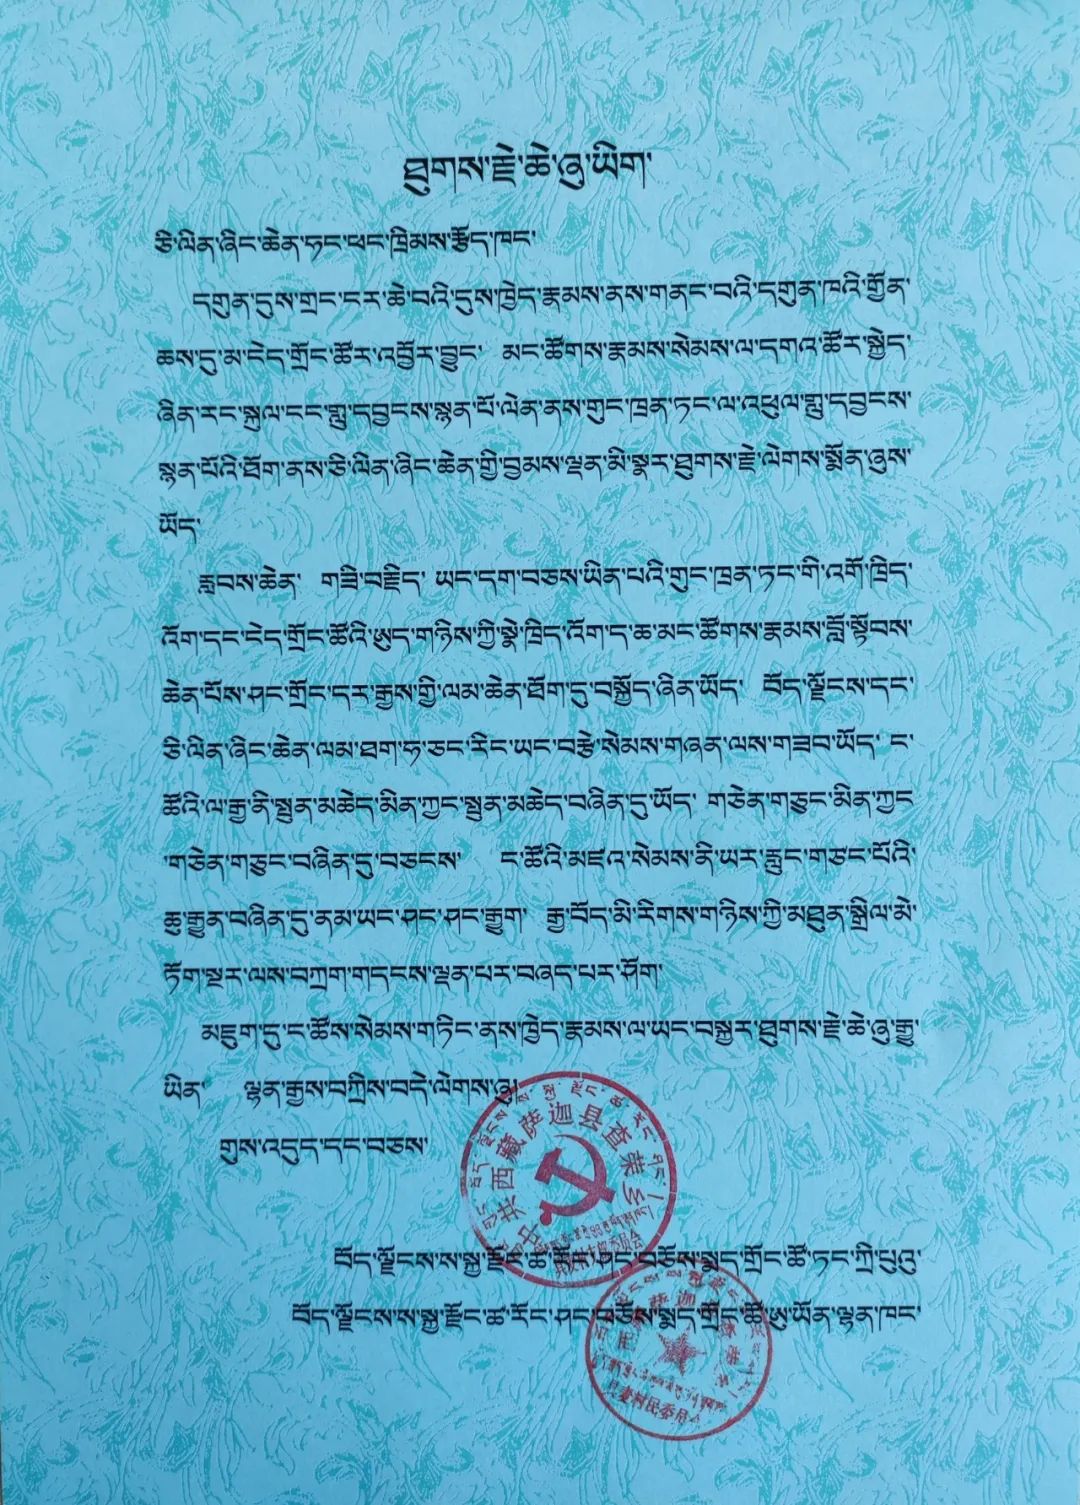 ཐུགས་རྗེ་ཆེ་ཞུ་ཡིག་
ཅི་ལིན་ཞིང་ཆེན་ཏང་ཕང་ཁྲིམས་རྩོད་ཁང་
དགུན་དུས་གྲང་ངར་ཆེ་བའི་དུས་ཁྱེད་རྣམས་ནས་གནང་བའི་དགུན་ཁའི་གྱོན་
ཆས་དུ་མ་ངེད་གྲོང་ཚོར་འབྱོར་བྱུང་ མང་ཚོགས་རྣམས་སེམས་ལ་དགའ་ཚོར་སྐྱེད་
ཞིན་རང་སྐུལ་ངང་གླུ་དབྱངས་སྙན་པོ་ལེན་ནས་གུང་ཁྲན་ཏང་ལ་འཕུལ་གླུ་དབྱངས་
སྙན་པོའི་ཐོག་ནས་ཅི་ལིན་ཞིང་ཆེན་གྱི་བྱམས་ལྡན་མི་སྣར་ཐུགས་རྗེ་ལེགས་སྨོན་ཞུས་
ཡོད་
རླབས་ཆེན་ གཟི་བརྗིད་ ཡང་དག་བཅས་ཡིན་པའི་གུང་ཁྲན་ཏང་གི་འགོ་ཁྲིད་
འོག་དང་ངེད་གྲོང་ཚོའི་ཨུད་གཉིས་ཀྱི་སྣེ་ཁྲིད་འོག་ད་ཆ་མང་ཚོགས་རྣམས་བློ་སྟོབས་
ཆེན་པོས་ཤང་གྲོང་དར་རྒྱས་ཀྱི་ལམ་ཆེན་ཐོག་དུ་བསྐྱོད་ཞིན་ཡོད་ བོད་ལྗོངས་དང་
ཅི་ལིན་ཞིང་ཆེན་ལམ་ཐག་ཧ་ཅང་རིང་ཡང་བརྩེ་སེམས་གཞན་ལས་གཟབ་ཡོད་ ང་
ཚོའི་ལ་རྒྱ་ནི་སྤུན་མཆེད་མིན་ཀྱང་སྤུན་མཆེད་བཞིན་དུ་ཡོད་ གཅེན་གཅུང་མིན་ཀྱང
་གཅེན་གཅུང་བཞིན་དུ་བཅངས་ ང་ཚོའི་མཛའ་སེམས་ནི་ཡར་རླུང་གཙང་པོའི་
ཆུ་རྒྱུན་བཞིན་དུ་ནམ་ཡང་ཤང་ཤང་རྒྱུག་ རྒྱ་བོད་མི་རིགས་གཉིས་ཀྱི་མཐུན་སྒྲིལ་མེ་
ཏོག་སྔར་ལས་བཀྲག་གདངས་ལྡན་པར་བཞད་པར་ཤོག་
མཇུག་དུ་ང་ཚོས་སེམས་གཏིང་ནས་ཁྱེད་རྣམས་ལ་ཡང་བསྐྱར་ཐུགས་རྗེ་ཆེ་ཞུ་རྒྱུ་
ཡིན་ ལྷན་རྒྱས་བཀྲིས་བདེ་ལེགས་ཞུ།
གུས་འདུད་དང་བཅས་
中共西藏萨迦县查荣乡
བོད་ལྗོངས་ས་སྐྱ་རྫོང་ཚ་རོང་ཤང་བཅོས་སྨད་གྲོང་ཚོ་ཏང་ཀྲི་པུའུ་
བོད་ལྗོངས་ས་སྐྱ་རྫོང་ཚ་རོང་ཤང་བཅོས་སྨད་གྲོང་ཚོ་ཨུ་ཡོན་ལྷན་ཁང་
村民委员会